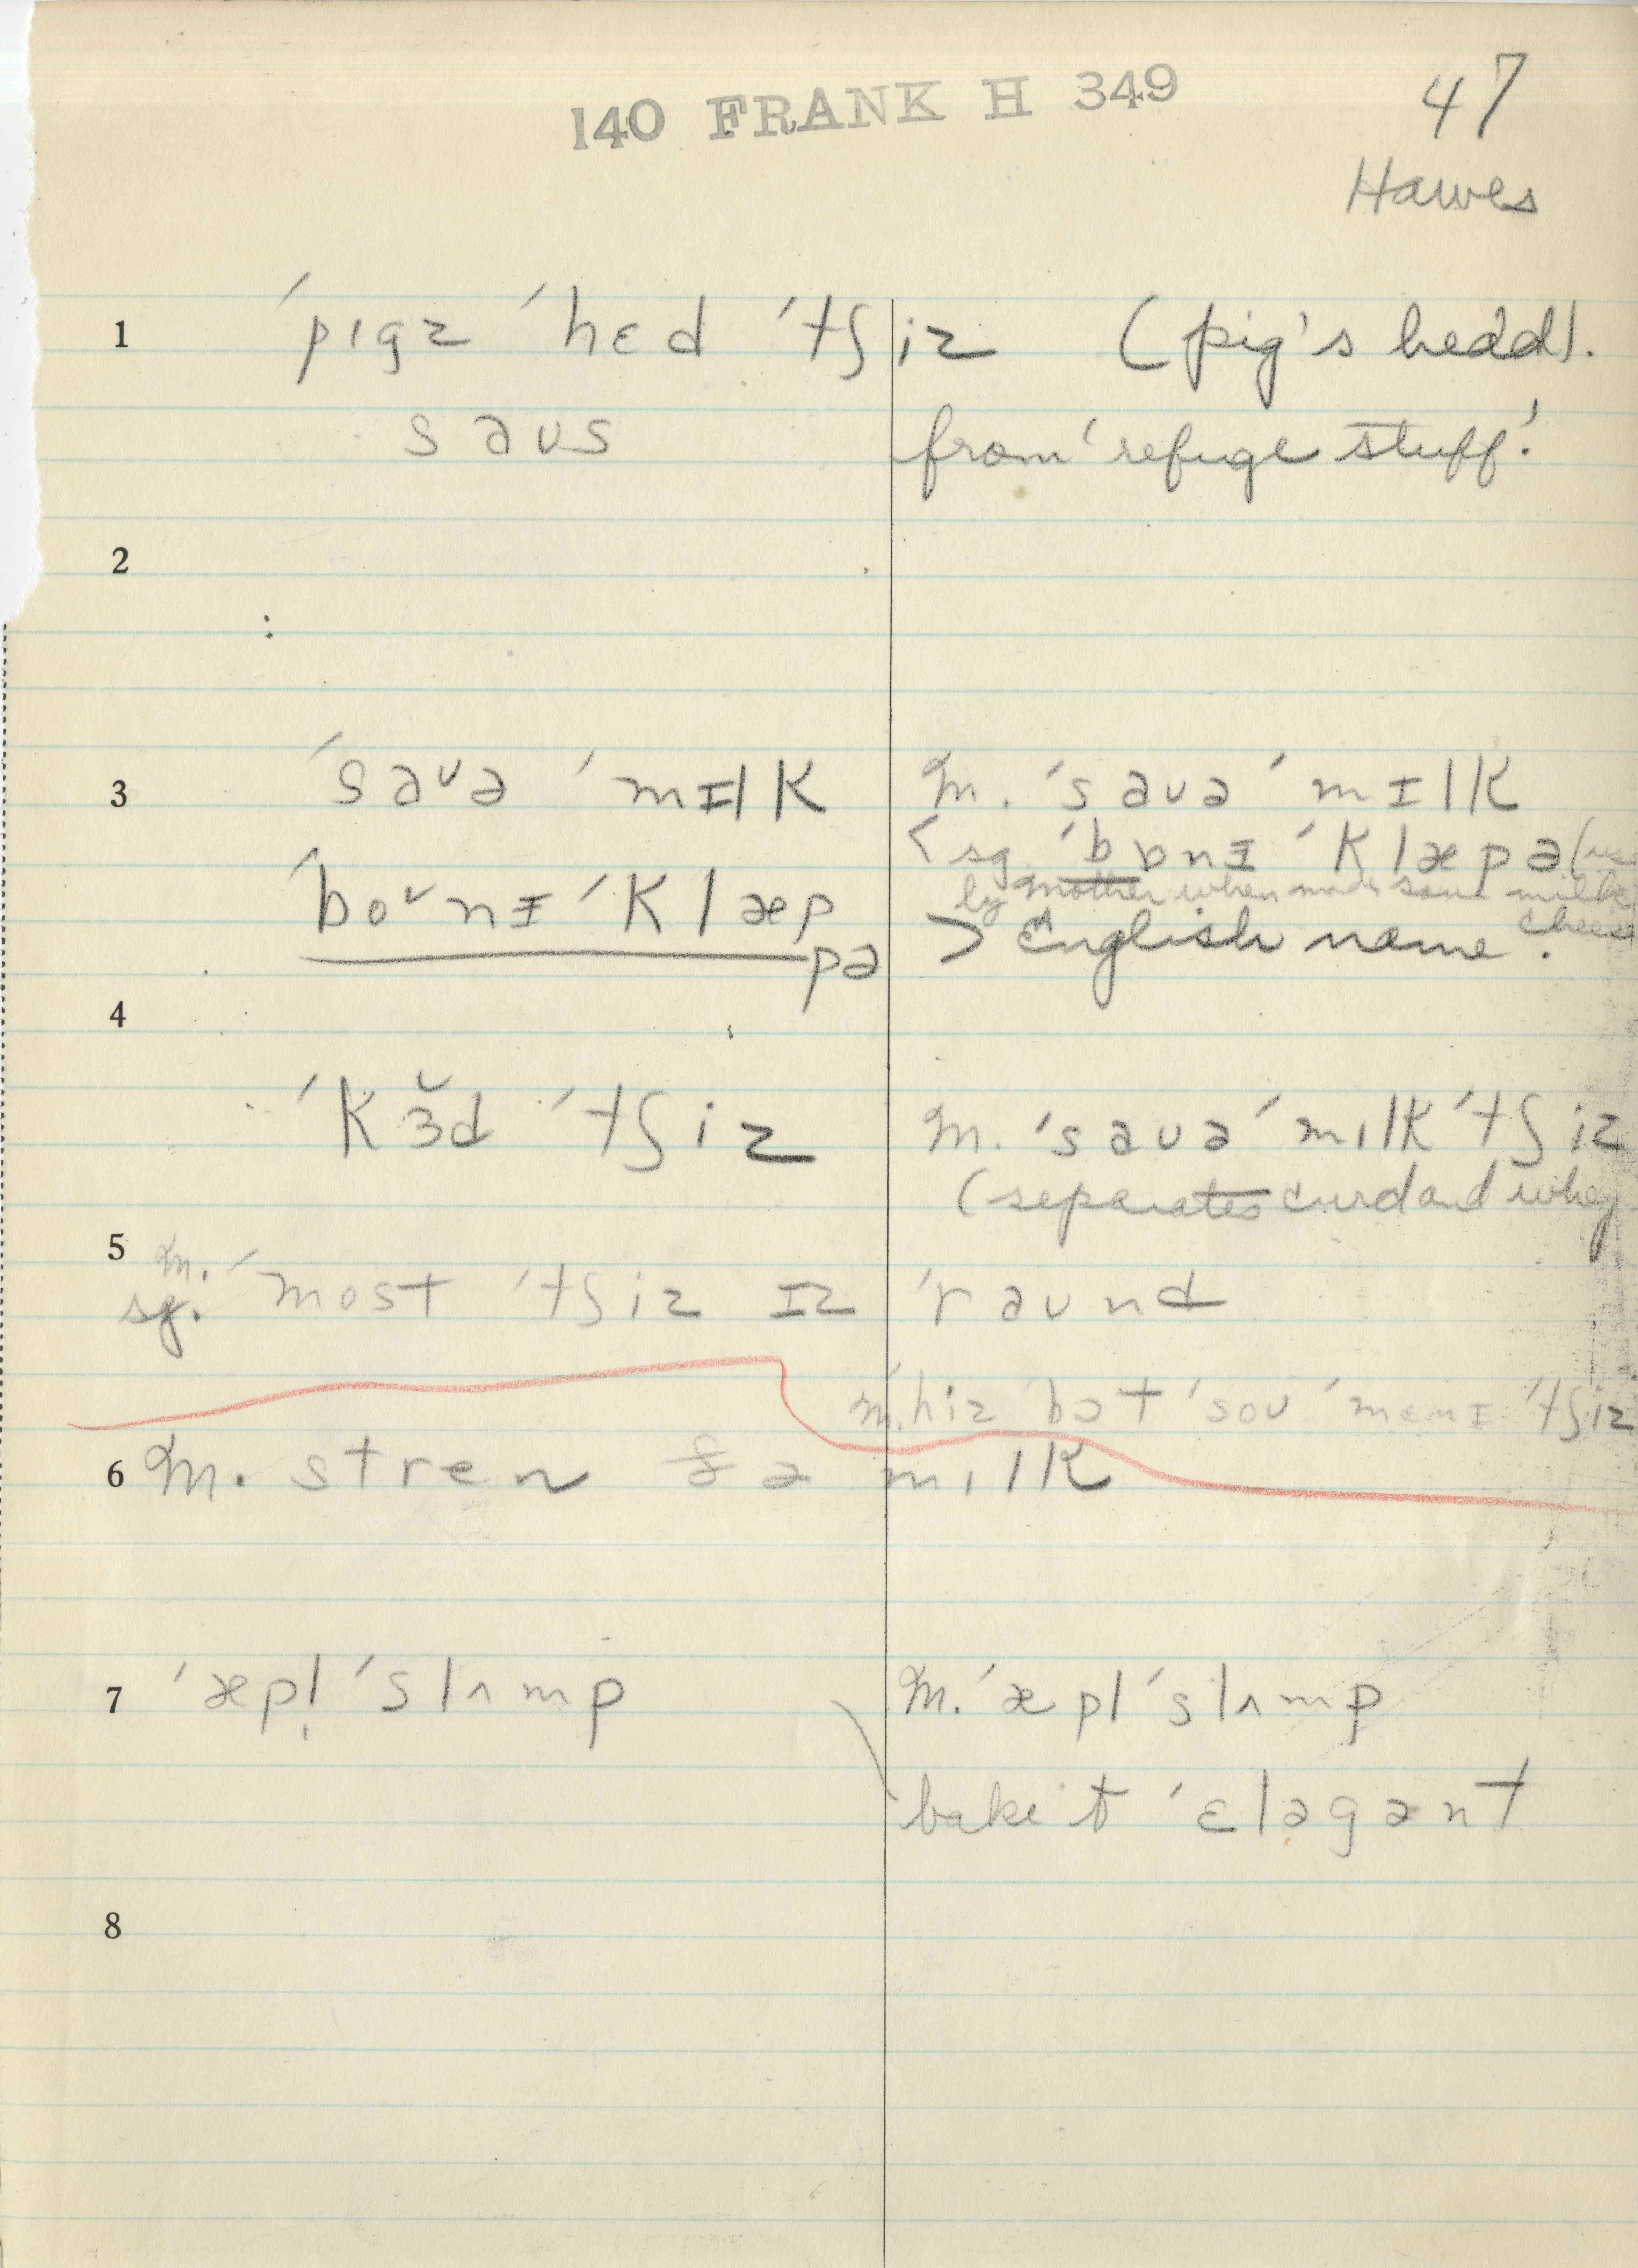 140 FRANK H 349
47
Hawes
1 ˈpɪgz ˈhɛd ˈtʃiz (pig's hedd).
saʊs from 'refuge stuff'.
2
3 ˈsaʊə ˈmɪlk m. ˈsaʊə ˈmɪlk
< sg. ˈbɒnɪ ˈklæpə
ˈboʊnɪ ˈklæp by mother when made sour milk cheese
pə > English name.
4
ˈkɜ̆d ˈtʃiz m. ˈsaʊə ˈmɪlk ˈtʃiz
(separates curd and whey
5 m.
sg. ˈmost ˈtʃiz ɪz ˈraʊnd
m. hiz ˈbɔt ˈsoʊ ˈmɛnɪ ˈtʃiz
6 m. stren ðə mɪlk
7 ˈæpl̩ ˈslʌmp m. ˈæpl ˈslʌmp
bake it ˈɛləgənt
8